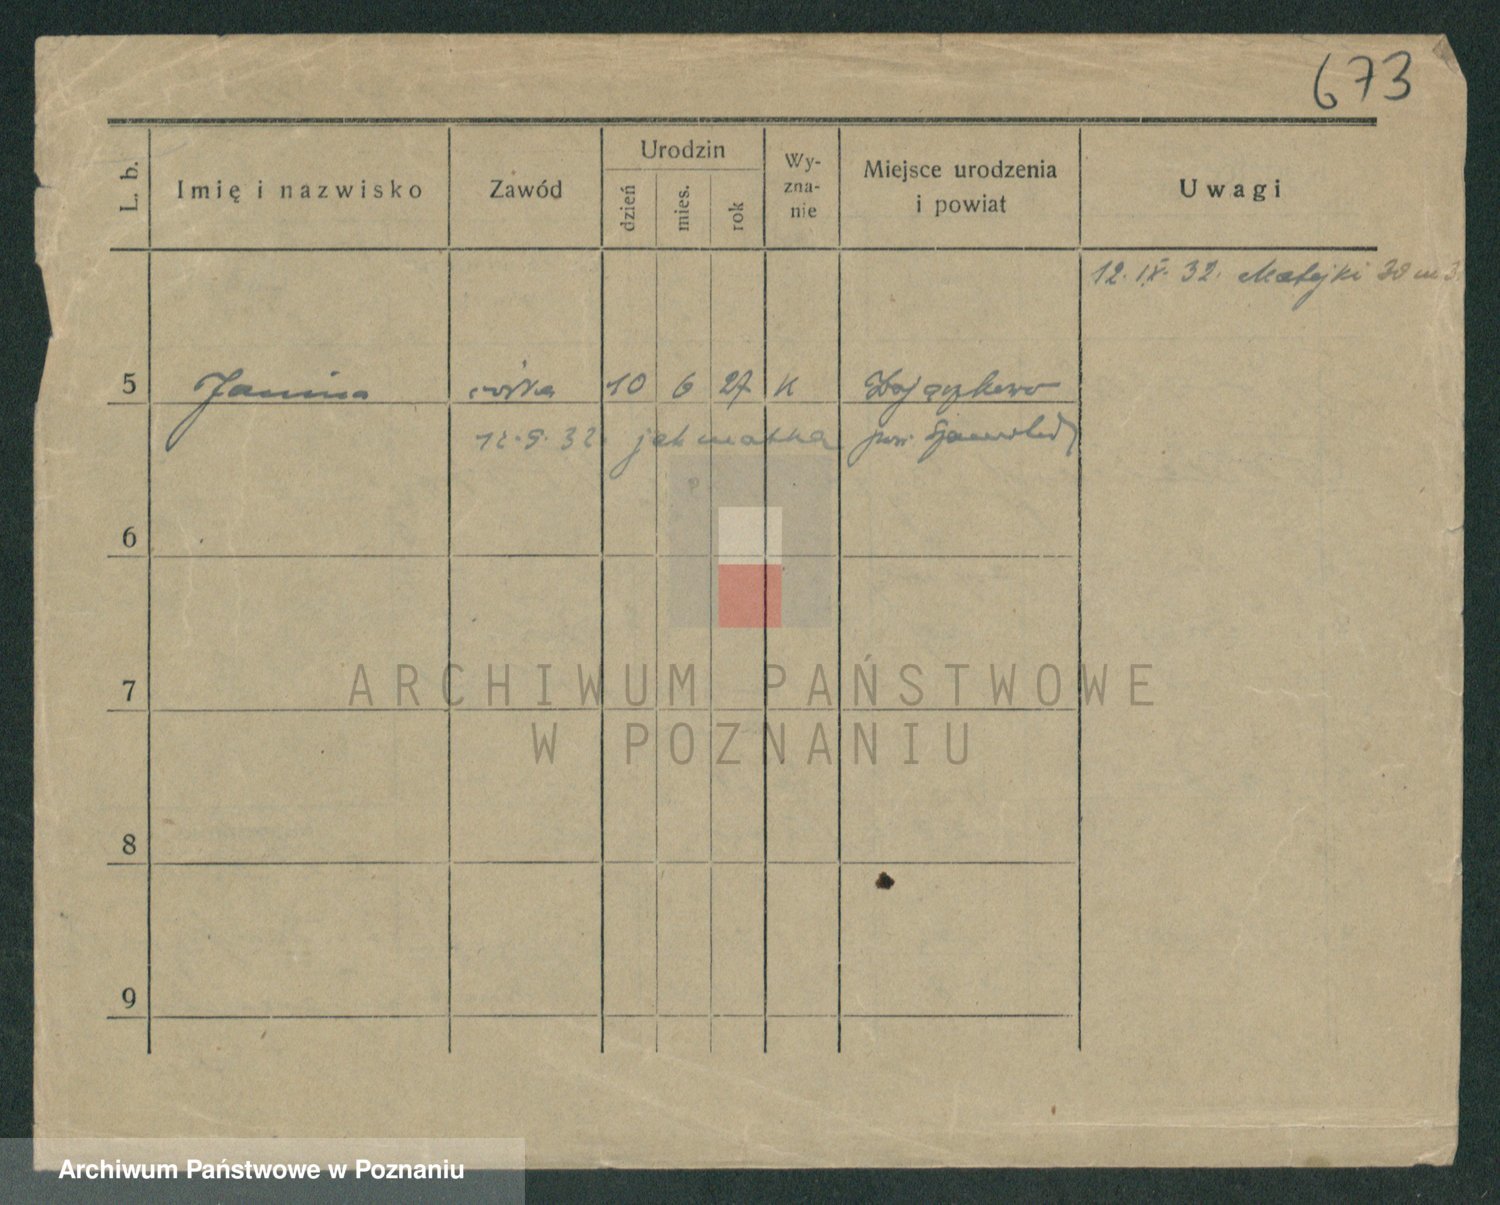 673
L. b.
Imię i nazwisko
Zawód
Urodzin
dzień
mies.
rok
Wy-
zna-
nie
Miejsce urodzenia
i powiat
Uwagi
12. IX. 32. Matejki 30 m 3.
5 Janina córka 10 6 27 k
12.9.32. jak matka pow.
6
7
8
9
ARCHIWUM PAŃSTWOWE
W POZNANIU
Archiwum Państwowe w Poznaniu